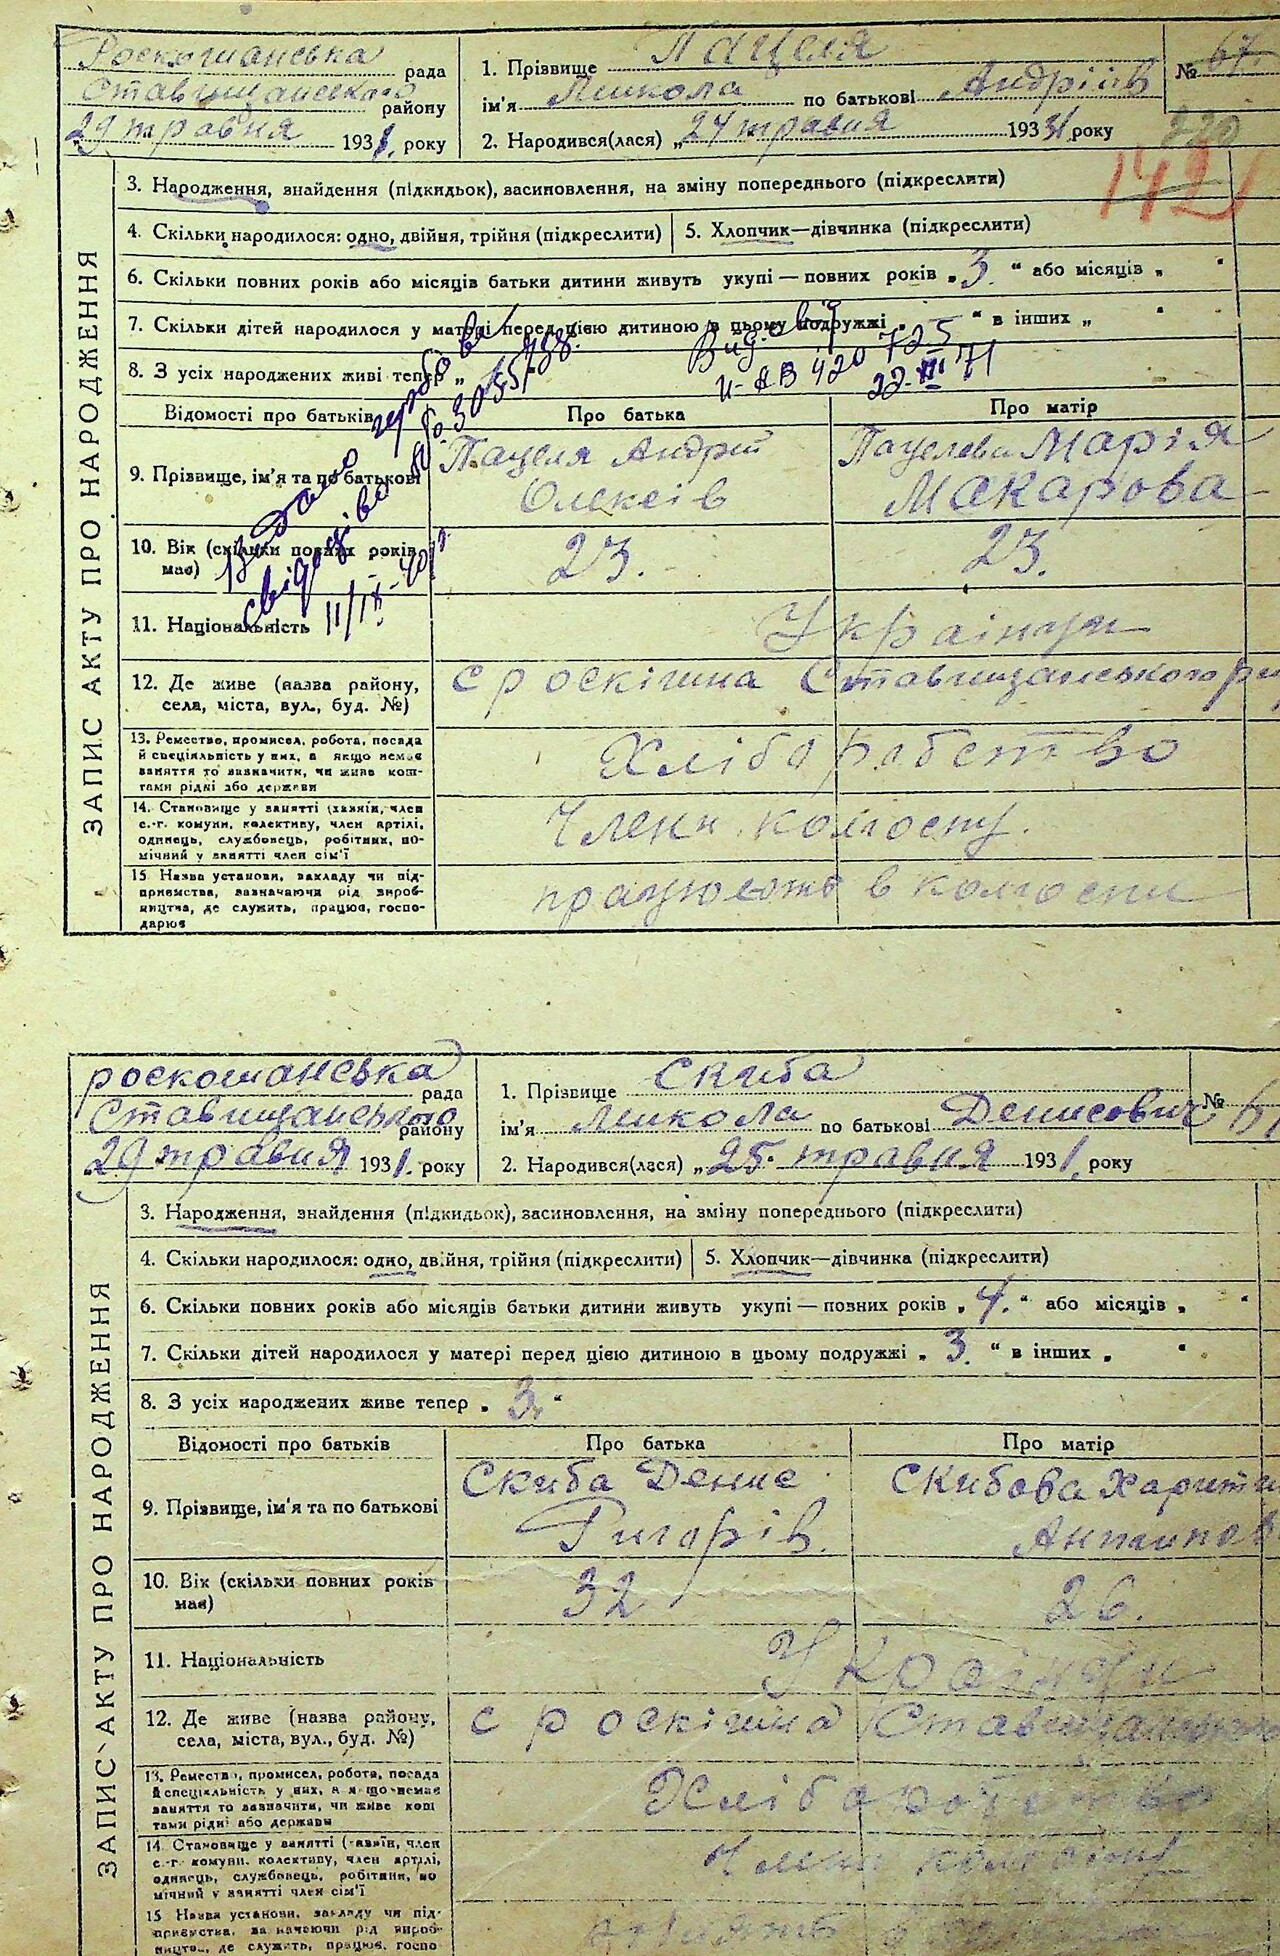 Роскошанська рада
Ставищанського району
29 травня 1931. року
1. Прізвище Пацеля
ім'я Микола по батькові Андріїв
2. Народився(лася) „24 травня 1931 року
№ 67.
142
ЗАПИС АКТУ ПРО НАРОДЖЕННЯ
3. Народження, знайдення (підкидьок), засиновлення, на зміну попереднього (підкреслити)
4. Скільки народилося: одно, двійня, трійня (підкреслити)
5. Хлопчик—дівчинка (підкреслити)
6. Скільки повних років або місяців батьки дитини живуть укупі — повних років „3.“ або місяців „ “
7. Скільки дітей народилося у матері перед цією дитиною в цьому подружжі „ — “ в інших „ “
8. З усіх народжених живі тепер „
Видано
свідоцтво
11/IX-40р.
Вид.
И-АВ 420725
22.VII 71
Відомості про батьків
Про батька
Про матір
9. Прізвище, ім'я та по батькові
Пацеля Андрій
Олексів
Пацелева Марія
Макарова
10. Вік (скільки повних років має)
23.
23.
11. Національність
Українци
12. Де живе (назва району, села, міста, вул., буд. №)
с роскішна Ставищанського р
13. Ремество, промисел, робота, посада
й спеціяльність у них, а якщо немає
заняття то зазначити, чи живе кош-
тами рідні або держави
Хліборобство
14. Становище у занятті (хазяїн, член
с.-г. комуни, колективу, член артілі,
одинець, службовець, робітник, по-
мічний у занятті член сім'ї
Члени колгоспу.
15 Назва установи, закладу чи під-
приємства, зазначаючи рід вироб-
ництва, де служить, працює, госпо-
дарює
працюють в колгоспи
роскошанська рада
Ставищанського району
29 травня 1931. року
1. Прізвище Скиба
ім'я микола по батькові Денисович
2. Народився(лася) „25. травня 1931. року
№
ЗАПИС АКТУ ПРО НАРОДЖЕННЯ
3. Народження, знайдення (підкидьок), засиновлення, на зміну попереднього (підкреслити)
4. Скільки народилося: одно, двійня, трійня (підкреслити)
5. Хлопчик—дівчинка (підкреслити)
6. Скільки повних років або місяців батьки дитини живуть укупі — повних років „4.“ або місяців „ “
7. Скільки дітей народилося у матері перед цією дитиною в цьому подружжі „3.“ в інших „ “
8. З усіх народжених живе тепер „3.“
Відомості про батьків
Про батька
Про матір
9. Прізвище, ім'я та по батькові
Скиба Денис
Григорів.
Скибова Харити
Антинов
10. Вік (скільки повних років має)
32
26.
11. Національність
Українци
12. Де живе (назва району, села, міста, вул., буд. №)
с роскішна Ставищанського
13. Ремество, промисел, робота, посада
й спеціяльність у них, а якщо немає
заняття то зазначити, чи живе кош
тами рідні або держави
Хліборобство
14. Становище у занятті (хазяїн, член
с.-г. комуни, колективу, член артілі,
одинець, службовець, робітник, по
мічний у занятті член сім'ї
Члени колгоспу
15 Назва установи, закладу чи під-
приємства, зазначаючи рід вироб-
ництва, де служить, працює, госпо